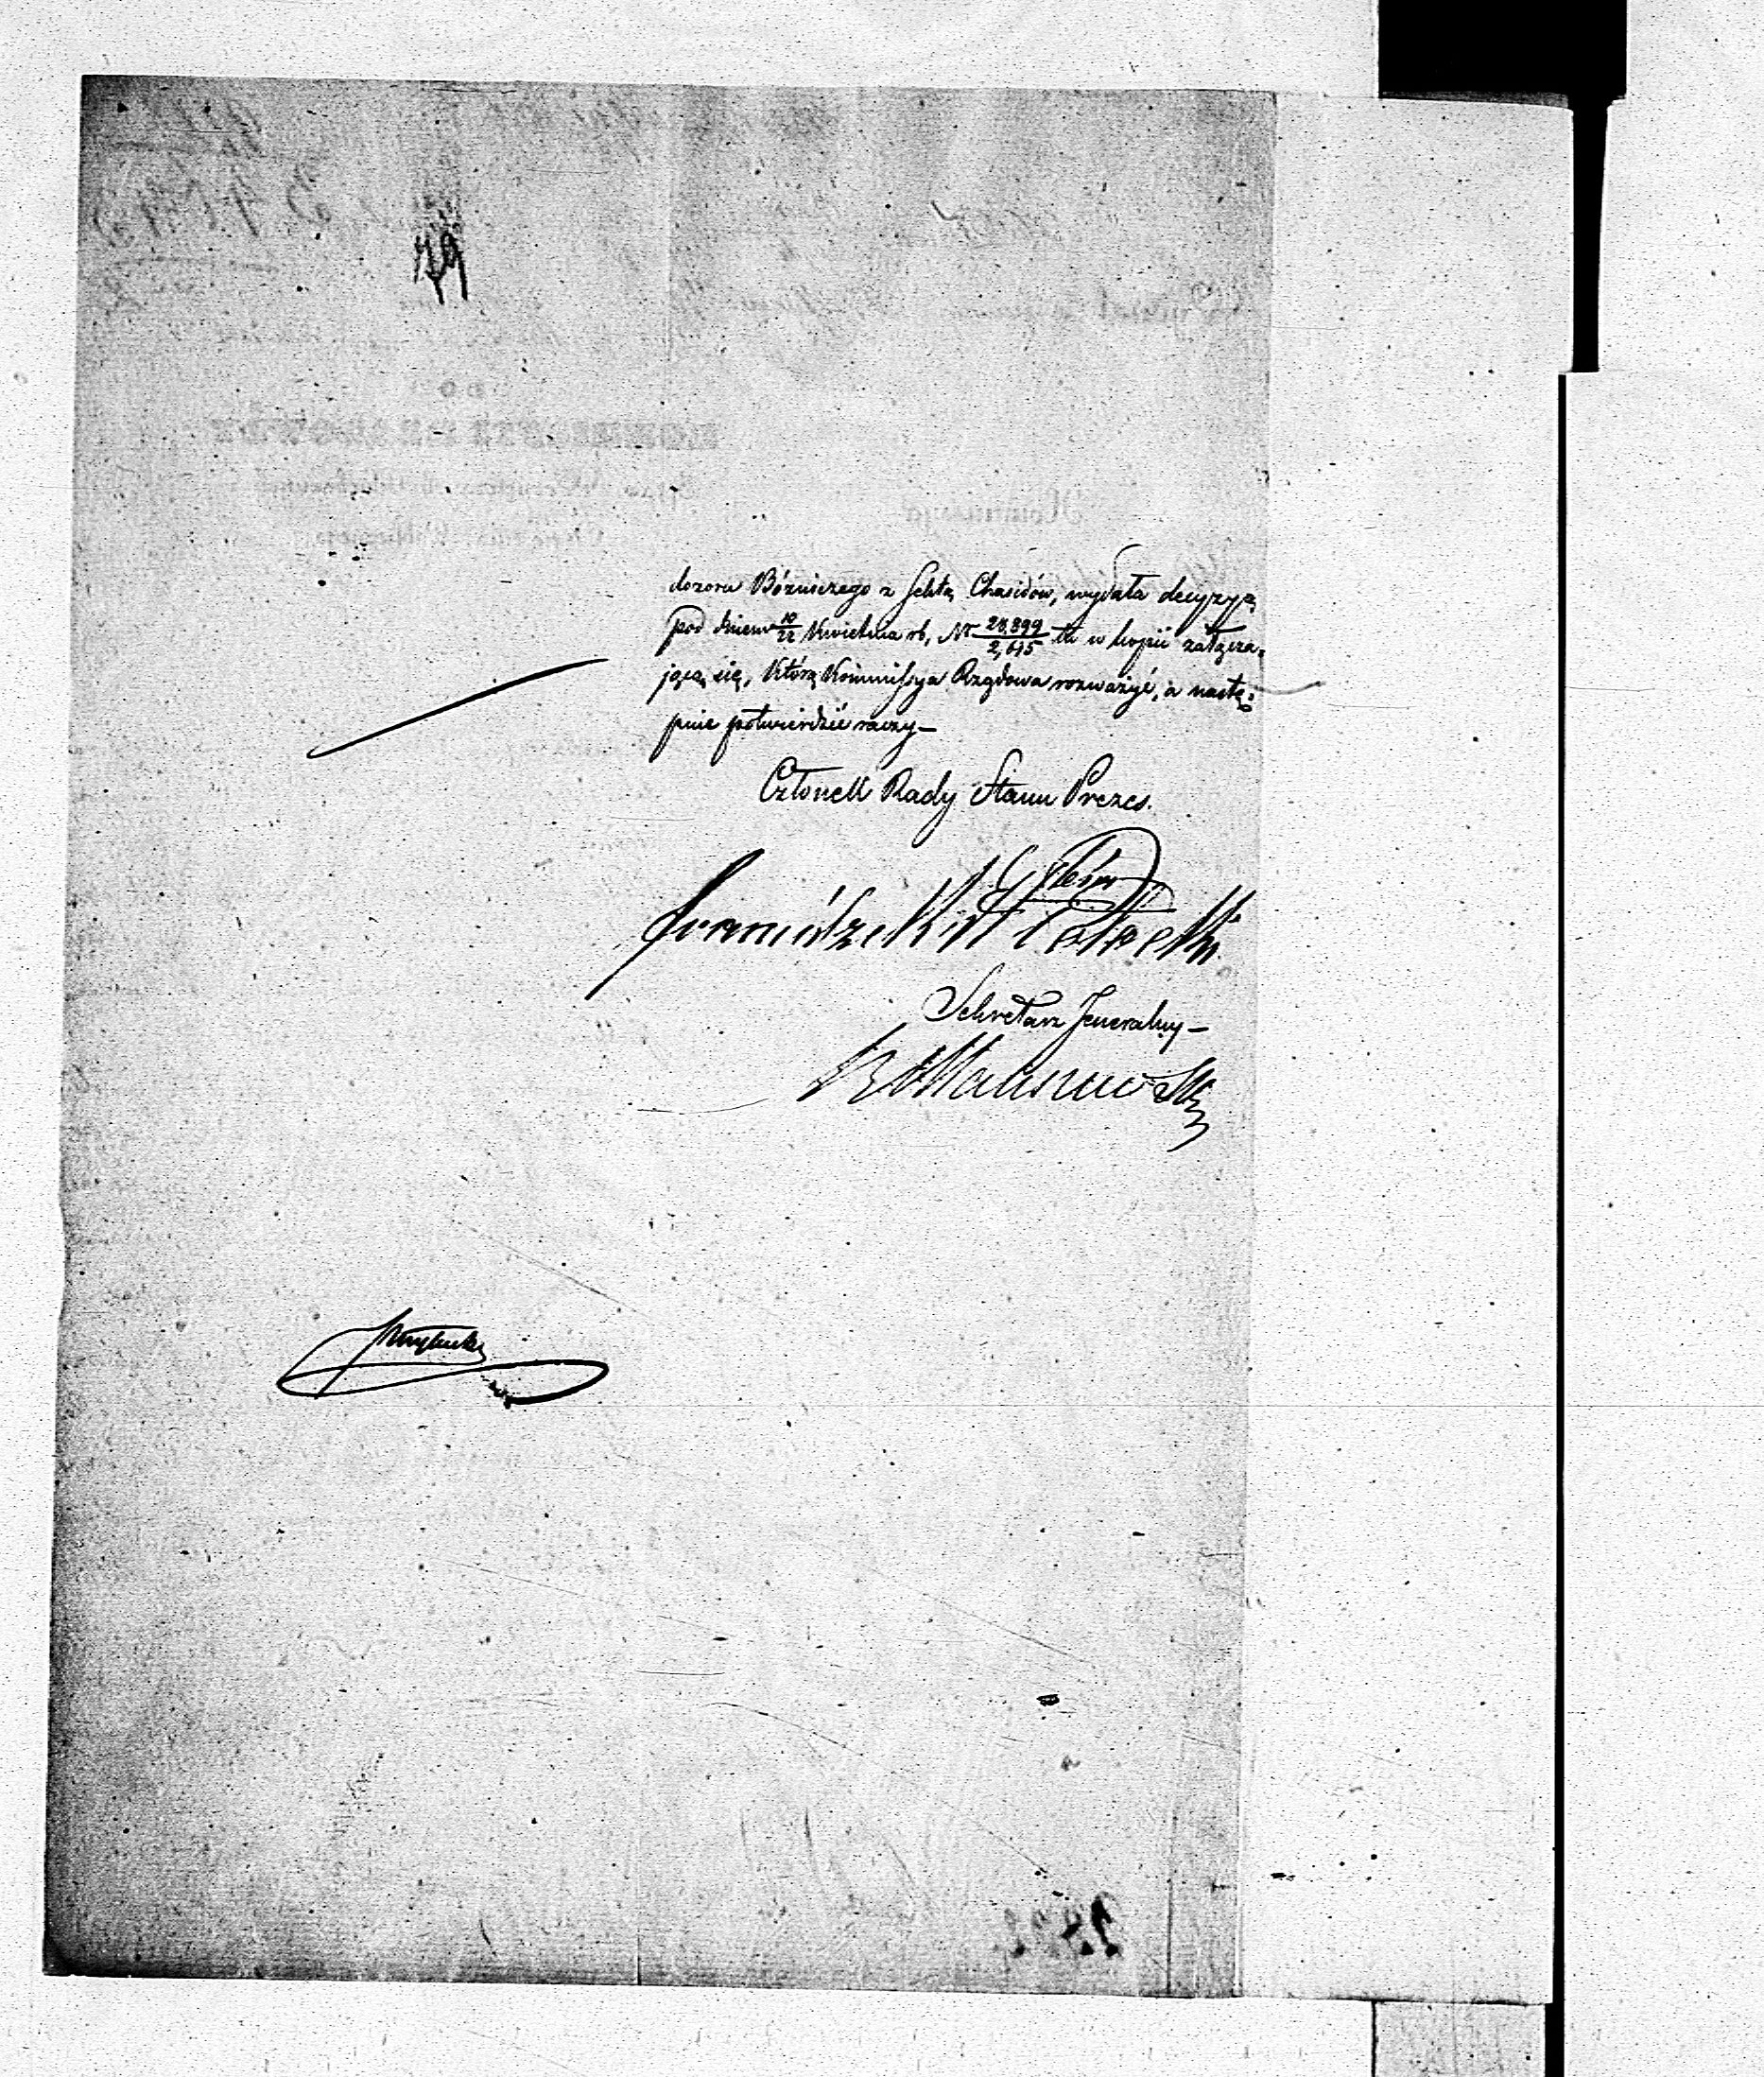 79
dozoru Bóżniczego z Sektą Chasidów, wydała decyzyą
pod dniem 10/22 Kwietnia rb, Nr 28,899/2,615 tu w kopii załącza-
jącą się, którą Kommissya Rządowa rozważyć, a nastę-
pnie potwierdzić raczy—
Członek Rady Stanu Prezes.
Franciszek Potocki
Sekretarz Jeneralny—